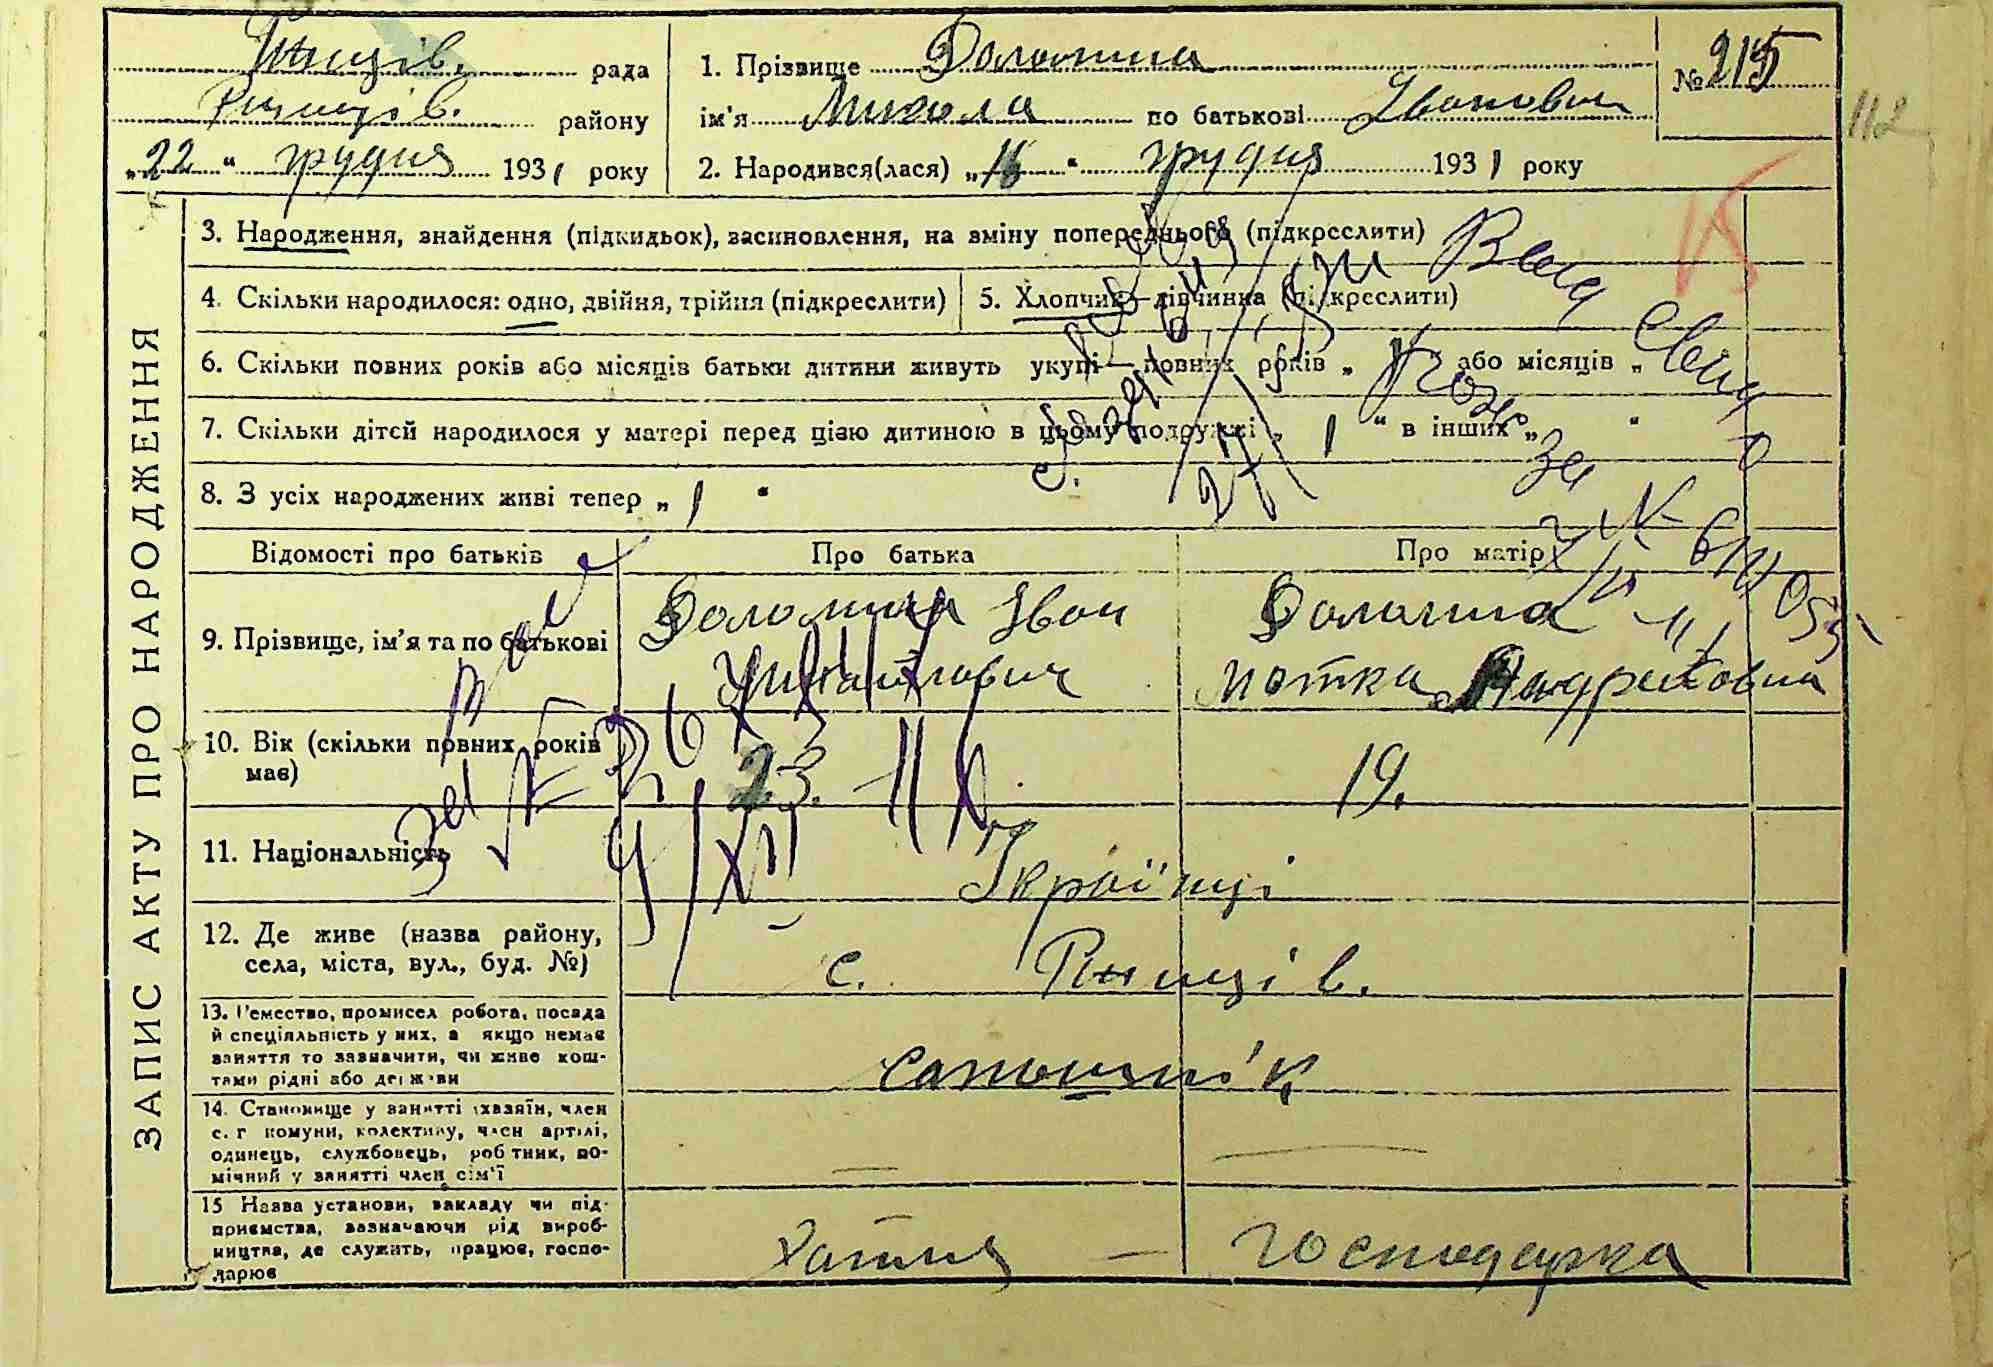 рада
району
„22“ грудня 1931 року
1. Прізвище Доломина
ім'я Микола по батькові Іванович
2. Народився(лася) „16“ грудня 1931 року
№ 215
112
15
ЗАПИС АКТУ ПРО НАРОДЖЕННЯ
3. Народження, знайдення (підкидьок), засиновлення, на зміну попереднього (підкреслити)
4. Скільки народилося: одно, двійня, трійня (підкреслити)
5. Хлопчик—дівчинка (підкреслити)
6. Скільки повних років або місяців батьки дитини живуть укупі—повних років „ або місяців „
7. Скільки дітей народилося у матері перед цією дитиною в цьому подружжі „ 1 “ в інших „ “
8. З усіх народжених живі тепер „ 1 “
Відомості про батьків
Про батька
Про матір
9. Прізвище, ім'я та по батькові
Доломина Іван
Михайлович
Доломина
Мотка Андриховна
10. Вік (скільки повних років має)
23.
19.
11. Національність
Українці
12. Де живе (назва району, села, міста, вул., буд. №)
с.
13. Ремество, промисел робота, посада й спеціяльність у них, а якщо немає заняття то зазначити, чи живе коштами рідні або держави
сапошнік
14. Становище у занятті (хазяїн, член с. г комуни, колективу, член артілі, одинець, службовець, робітник, помічний у занятті член сім'ї
—
—
15 Назва установи, закладу чи підприємства, зазначаючи рід виробництва, де служить, працює, господарює
Хатня — господарка
Вид
Свид
за №